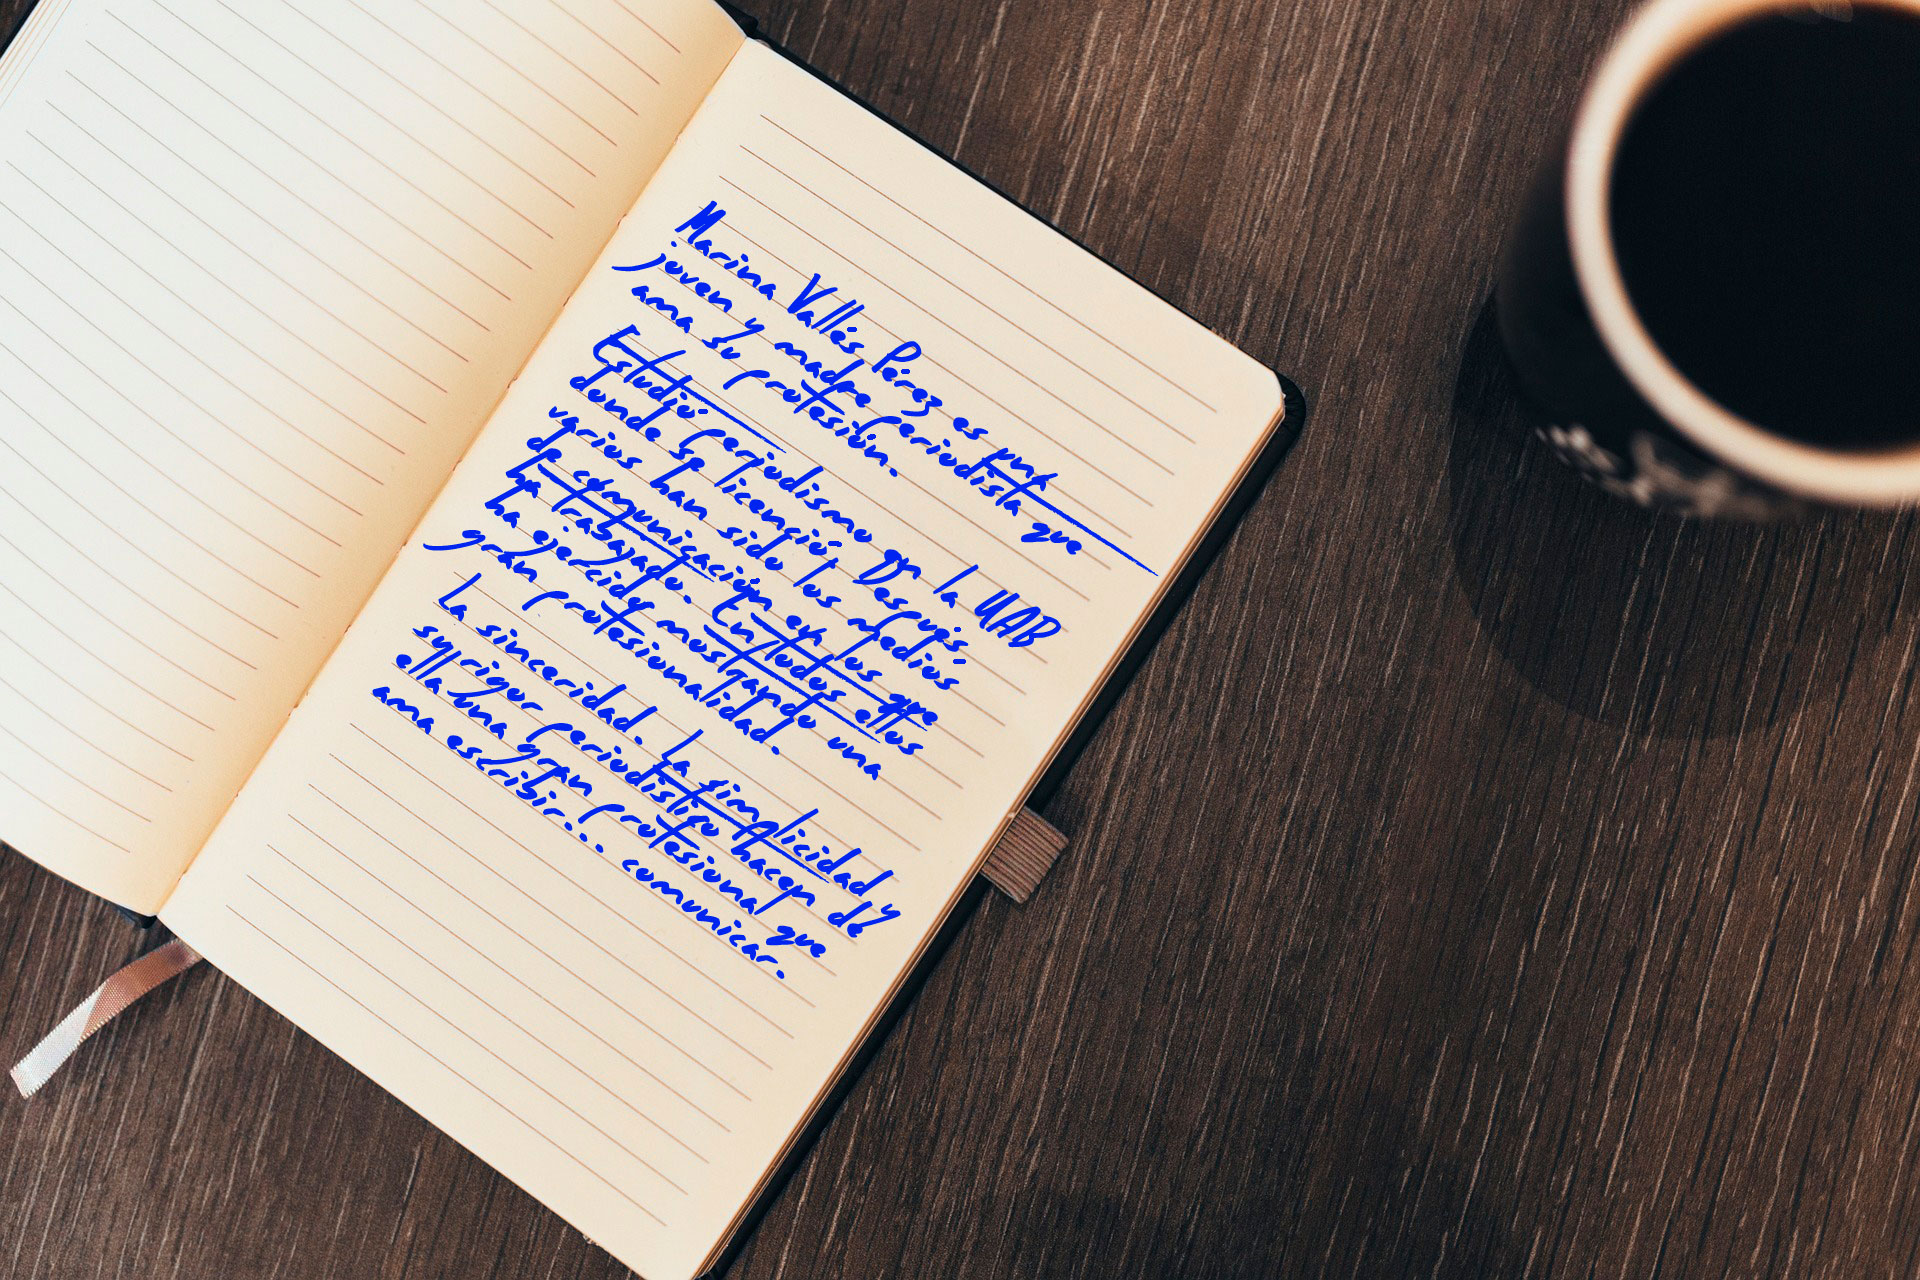 Marina Vallés Pérez es una
joven y madre periodista que
ama su profesión.
Estudió periodismo en la UAB
donde se licenció. Después
varios han sido los medios
de comunicación en los que
ha trabajado. En todos ellos
ha ejercido mostrando una
gran profesionalidad.
La sinceridad. La simplicidad y
su rigor periodístico hacen de
ella una gran profesional que
ama escribir... comunicar.